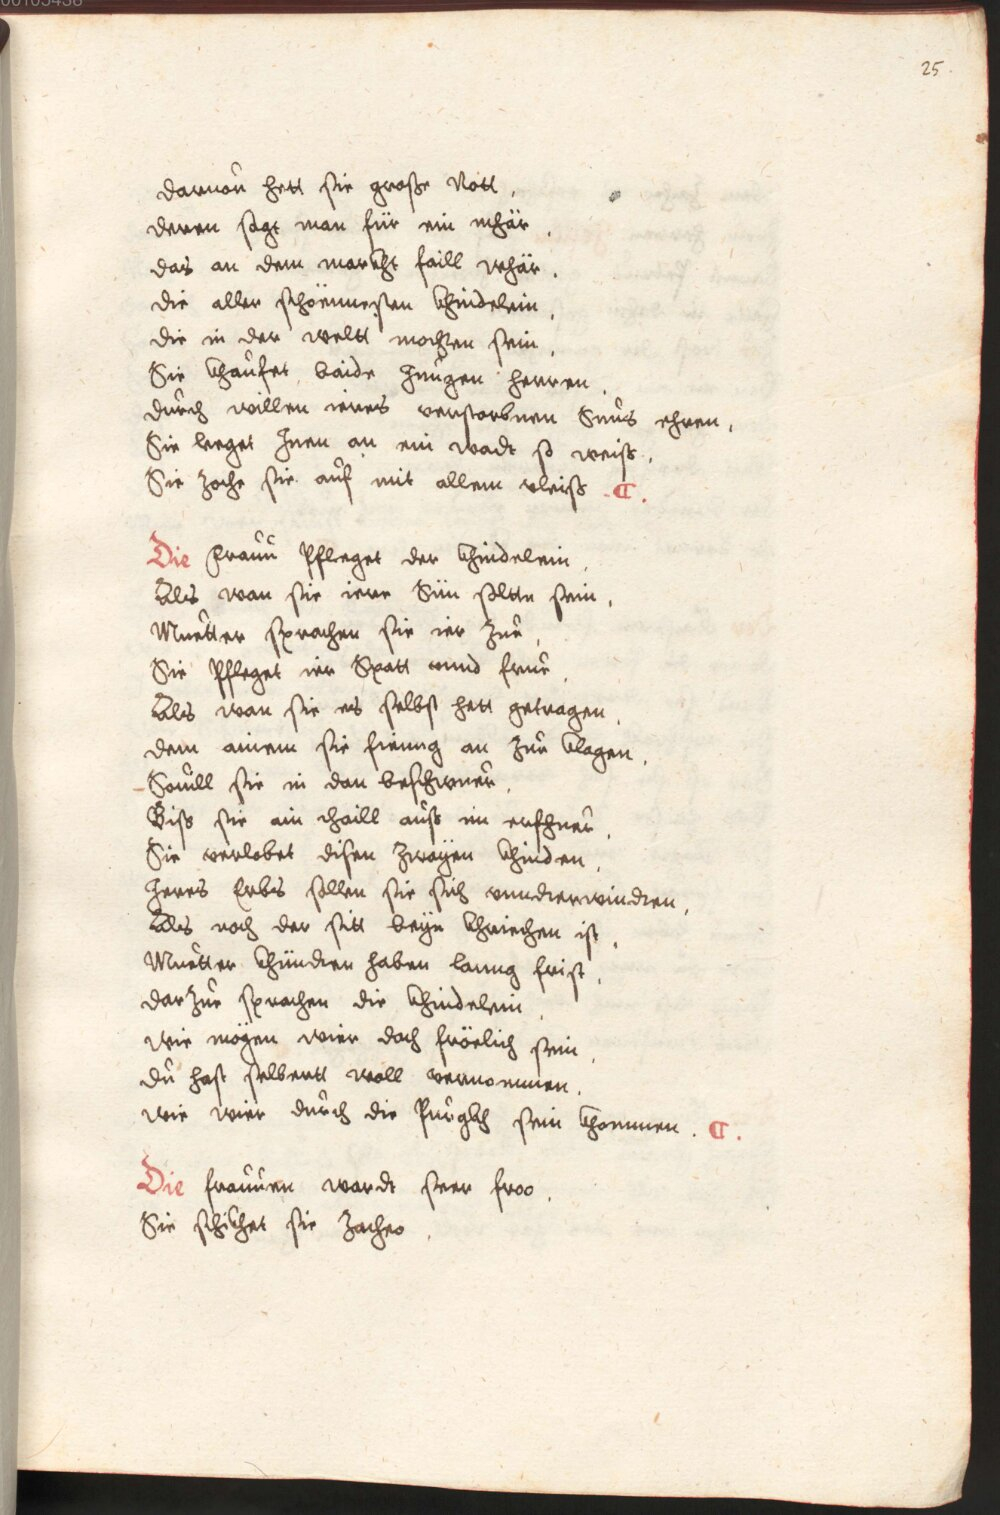 25
darnou̇ hett sie große Nott,
deren sagt man für ein mhär,
das an dem marckht faill whär,
die aller schöennesten khindelein,
die in der weltt mochten sein,
Sie khaufet baide Jungen herren,
durch willen ieres verstorbnen Suns ehren,
Sie leeget Jnen an ein wadt so weiß,
Sie zoche sie auf mit allem vleiß
Die frauu Pfleget der khindelein,
Als wan sie iere Sün solttn sein,
Muetter sprachen sie ier zue,
Sie Pfleget ier Spatt vnnd frue,
Als wan sie es selbst hett getragen,
dem ainem sie fienng an zue klagen,
Souill sie in dan beschwuer,
Biß sie ain thaill auß im erfhuer,
Sie verlobet disen zwayen khinden,
Jeres Erbs sollen sie sich vnndterwindten,
Als noch der sitt beyn khriechen ist,
Muetter khündten haben lanng frist,
darzue sprachen die khindelein,
wie mögen wier doch fröelich sein,
du hast selbertt woll vernommen,
wie wier durch die Purgkh sein khommen.
Die frauuen wardt seer froo,
Sie schickhet sie zacheo,